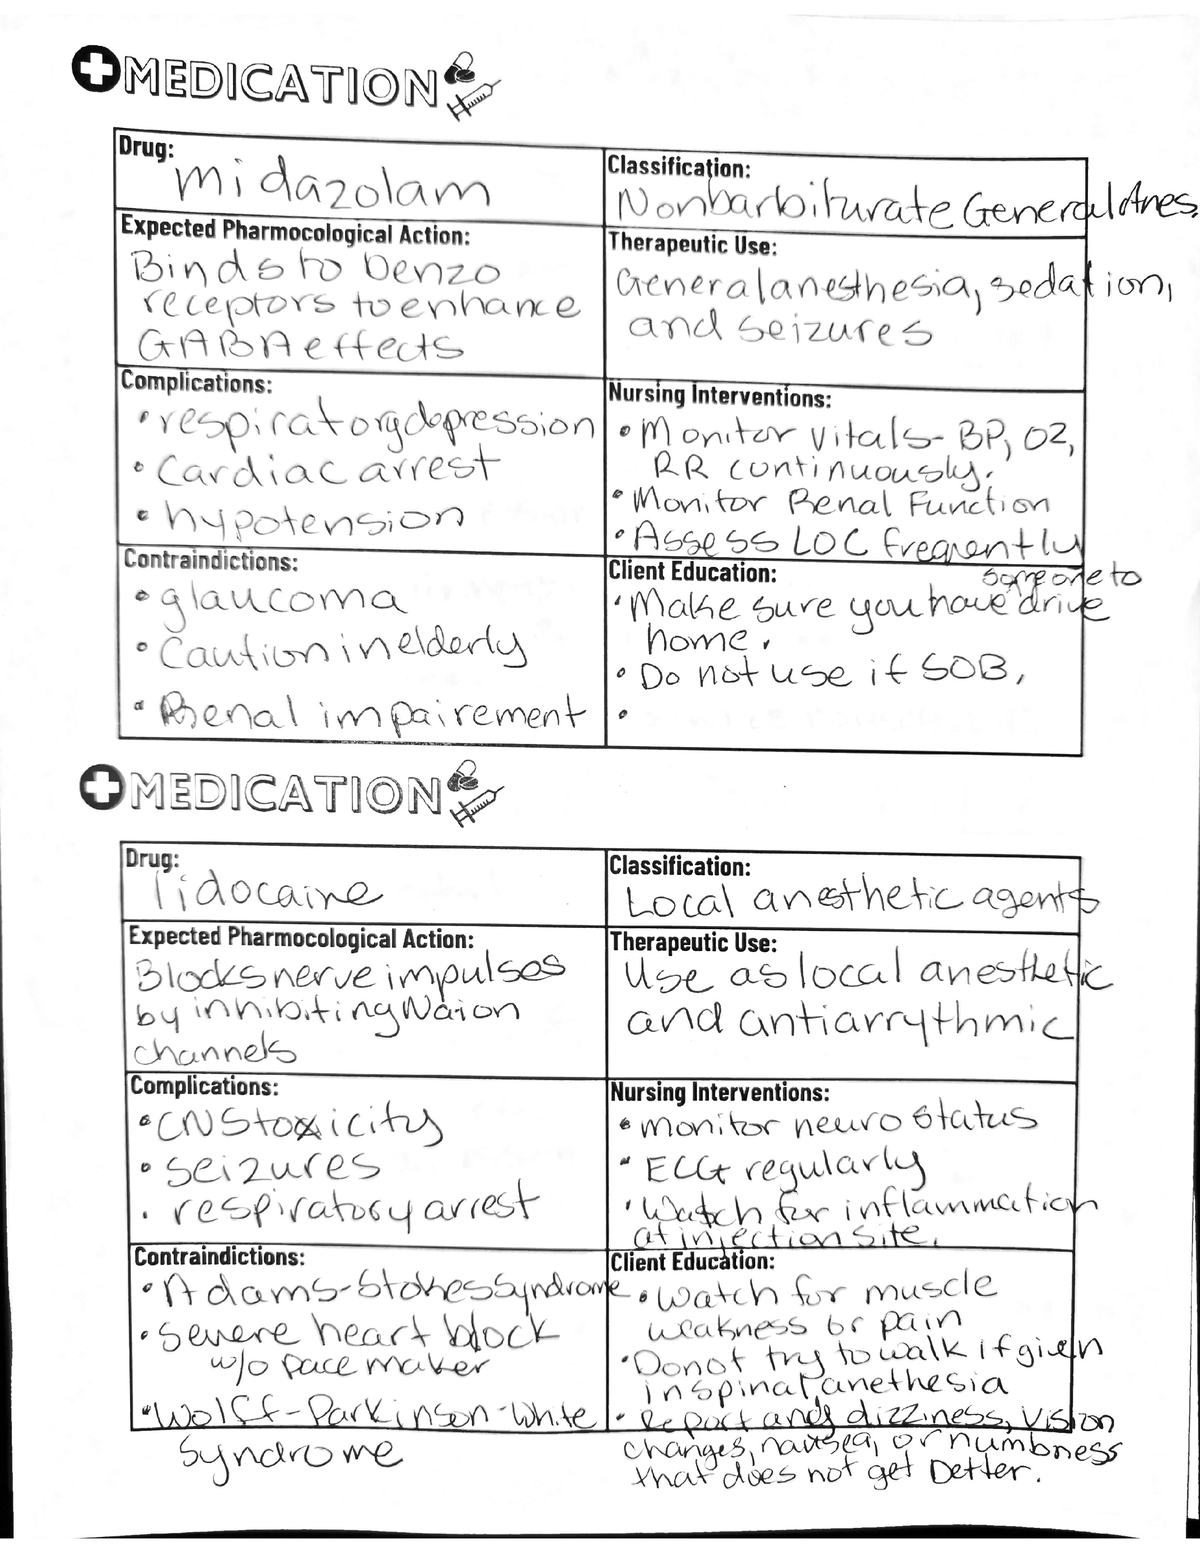 MEDICATION
Drug:
Midazolam
Classification:
Nonbarbiturate General Anes.
Expected Pharmocological Action:
Binds to benzo
receptors to enhance
GABA effects
Therapeutic Use:
General anesthesia, sedation,
and seizures
Complications:
• respiratory depression
• Cardiac arrest
• hypotension
Nursing Interventions:
• Monitor vitals- BP, O2,
RR continuously.
• Monitor Renal Function
• Assess LOC frequently
Contraindictions:
• glaucoma
• Caution in elderly
• Renal impairement
Client Education:
• Make sure you have someone to drive
home.
• Do not use if SOB.
•
MEDICATION
Drug:
lidocaine
Classification:
Local anesthetic agents
Expected Pharmocological Action:
Blocks nerve impulses
by inhibiting Na ion
channels
Therapeutic Use:
Use as local anesthetic
and antiarrythmic
Complications:
• CNS toxicity
• seizures
• respiratory arrest
Nursing Interventions:
• monitor neuro status
• ECG regularly
• Watch for inflammation
at injection site.
Contraindictions:
• Adams-Stokes Syndrome
• severe heart block
w/o pace maker
• Wolff-Parkinson-White
Syndrome
Client Education:
• Watch for muscle
weakness or pain
• Do not try to walk if given
in spinal anethesia
• Report any dizziness, vision
changes, nausea, or numbness
that does not get better.